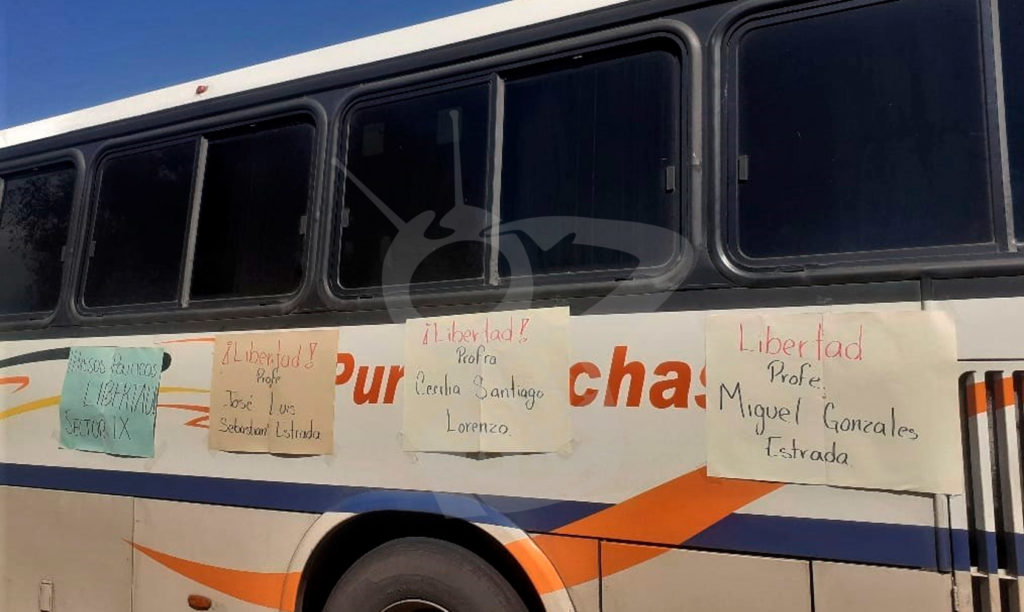 PRESOS POLITICOS
LIBERTAD
SECTOR IX
¡Libertad!
Profe
José Luis
Sebastian Estrada
Pur
¡Libertad!
Profra
Cecilia Santiago
Lorenzo.
chas
Libertad
Profe.
Miguel Gonzales
Estrada.